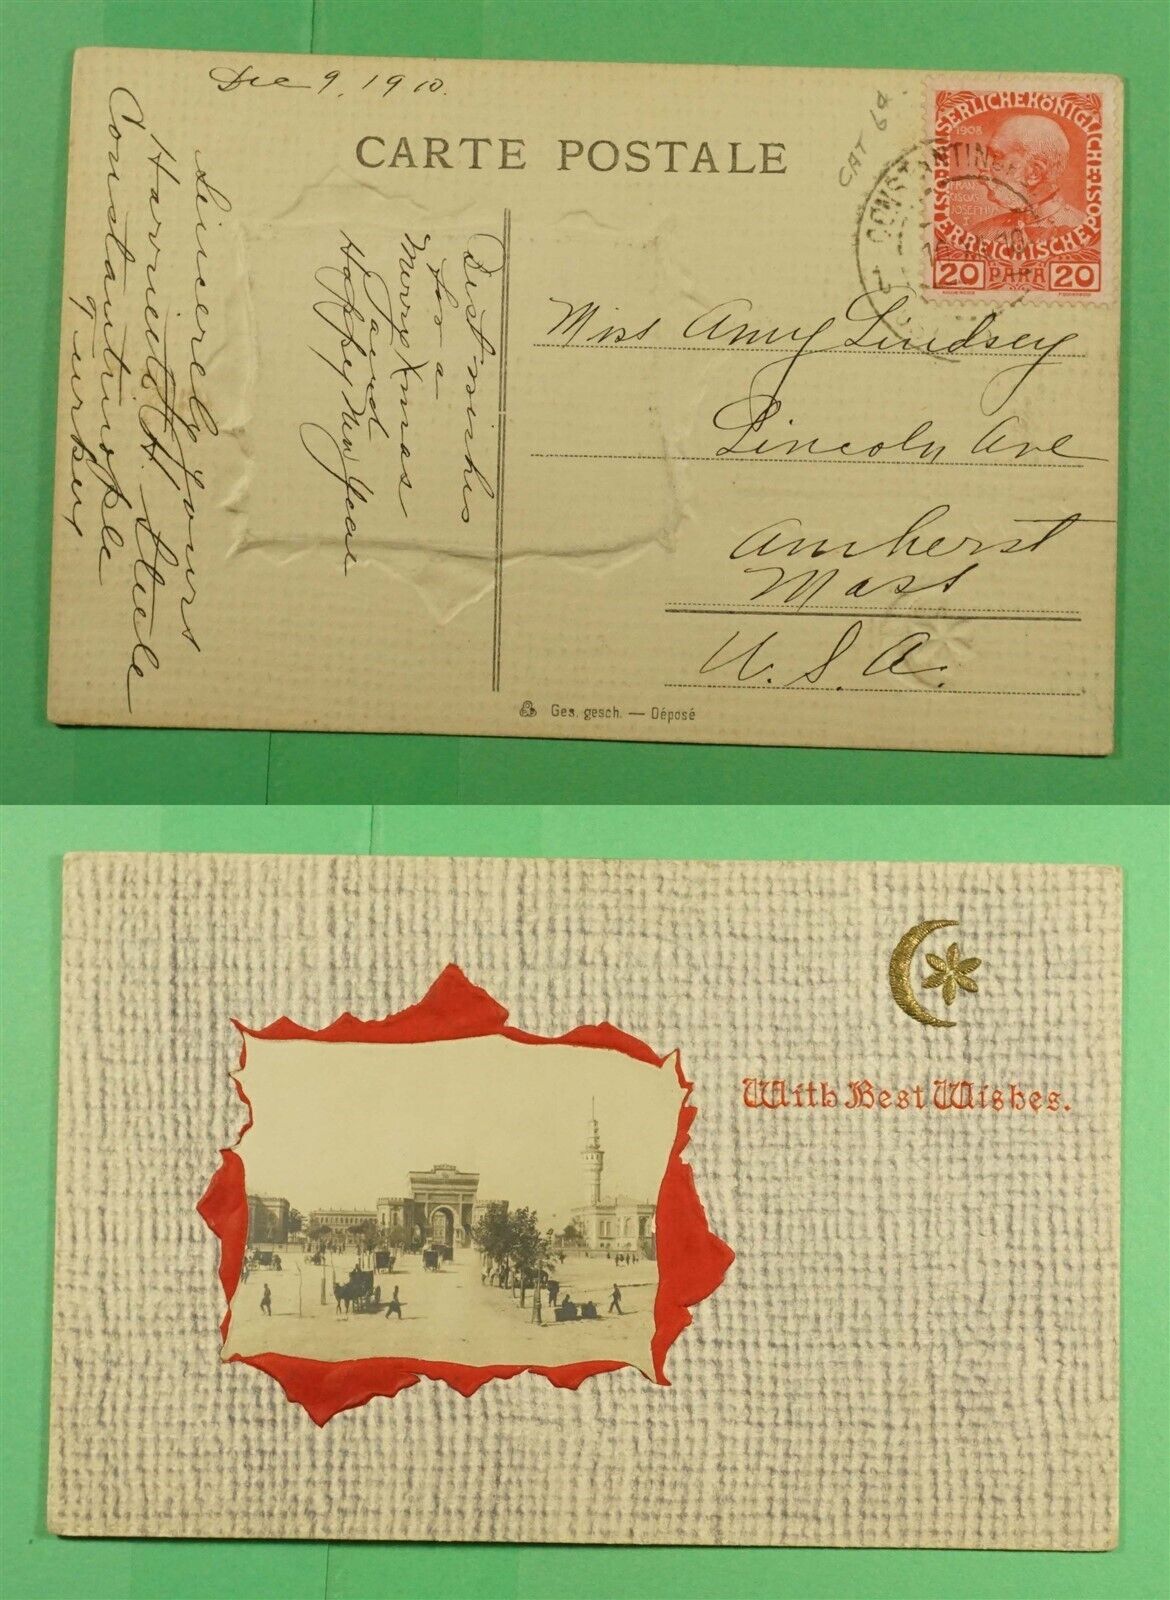 Dec 9, 1910.
CARTE POSTALE
CAT 64.
KAISERLICHE KÖNIGLICHE ÖSTERREICHISCHE POST
1908
FRAN
CISCVS
JOSEPHVS
I
20 PARA 20
CONSTANTINOPEL
10
Best wishes
for a
Merry Xmas
and
Happy New Year
Sincerely yours
Harriette H. Steele
Constantinople
Turkey
Miss Amy Lindsey
Lincoln Ave
Amherst
Mass
U. S. A.
Ges. gesch. — Déposé
With Best Wishes.